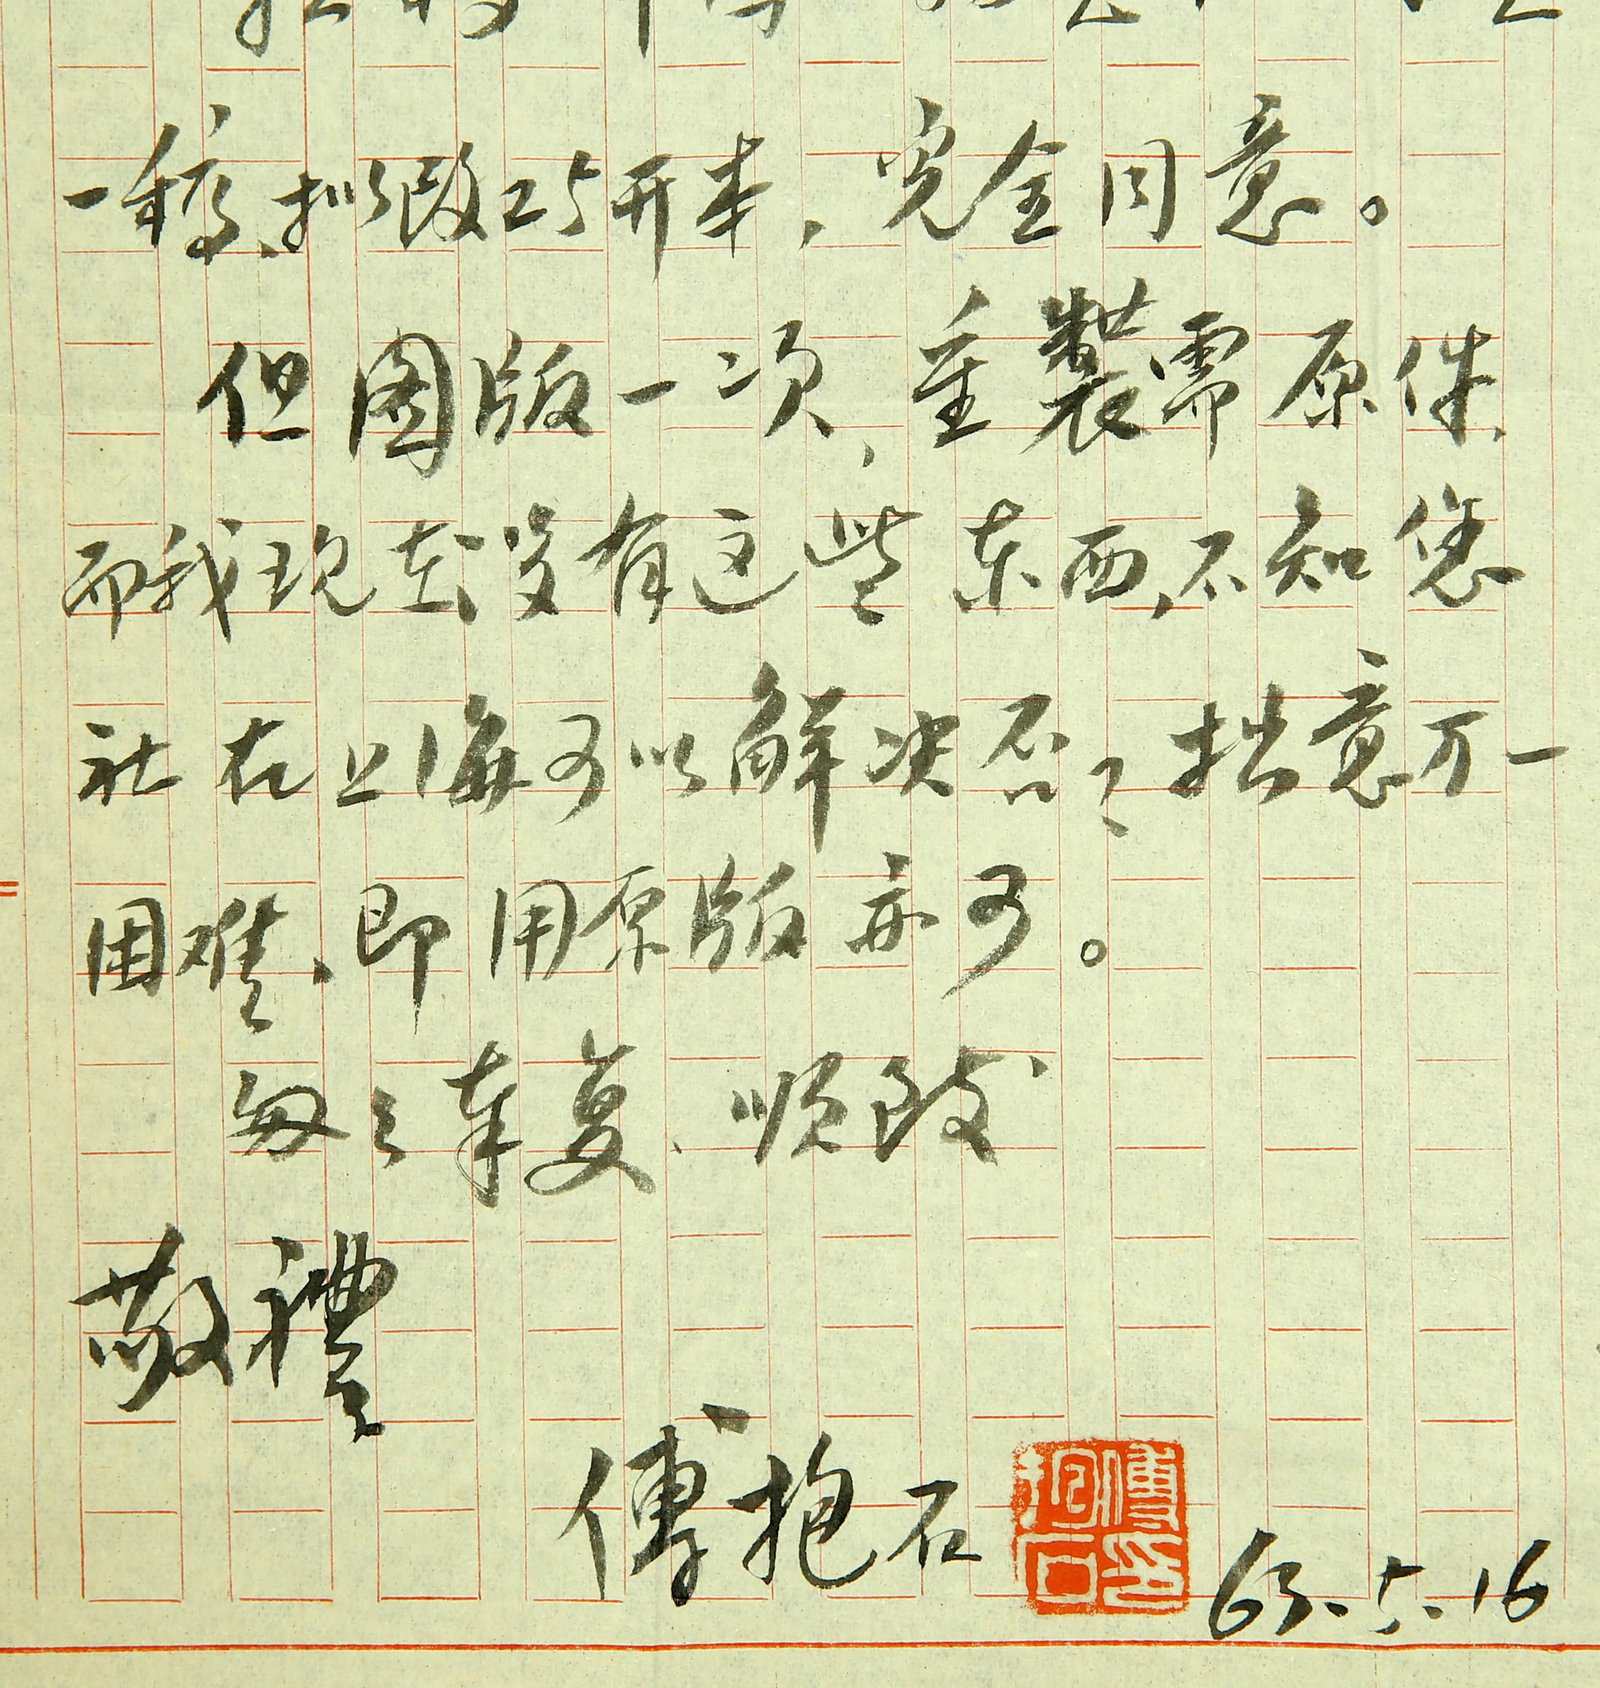 一稿、拟改25开本，完全同意。
但图版一次，重製需原件，
而我现在没有这些东西，不知您
社在上海可以解决否？拙意万一
困难、即用原版亦可。
匆匆奉复、顺致
敬禮
傅抱石
傅抱石印
63.5.16